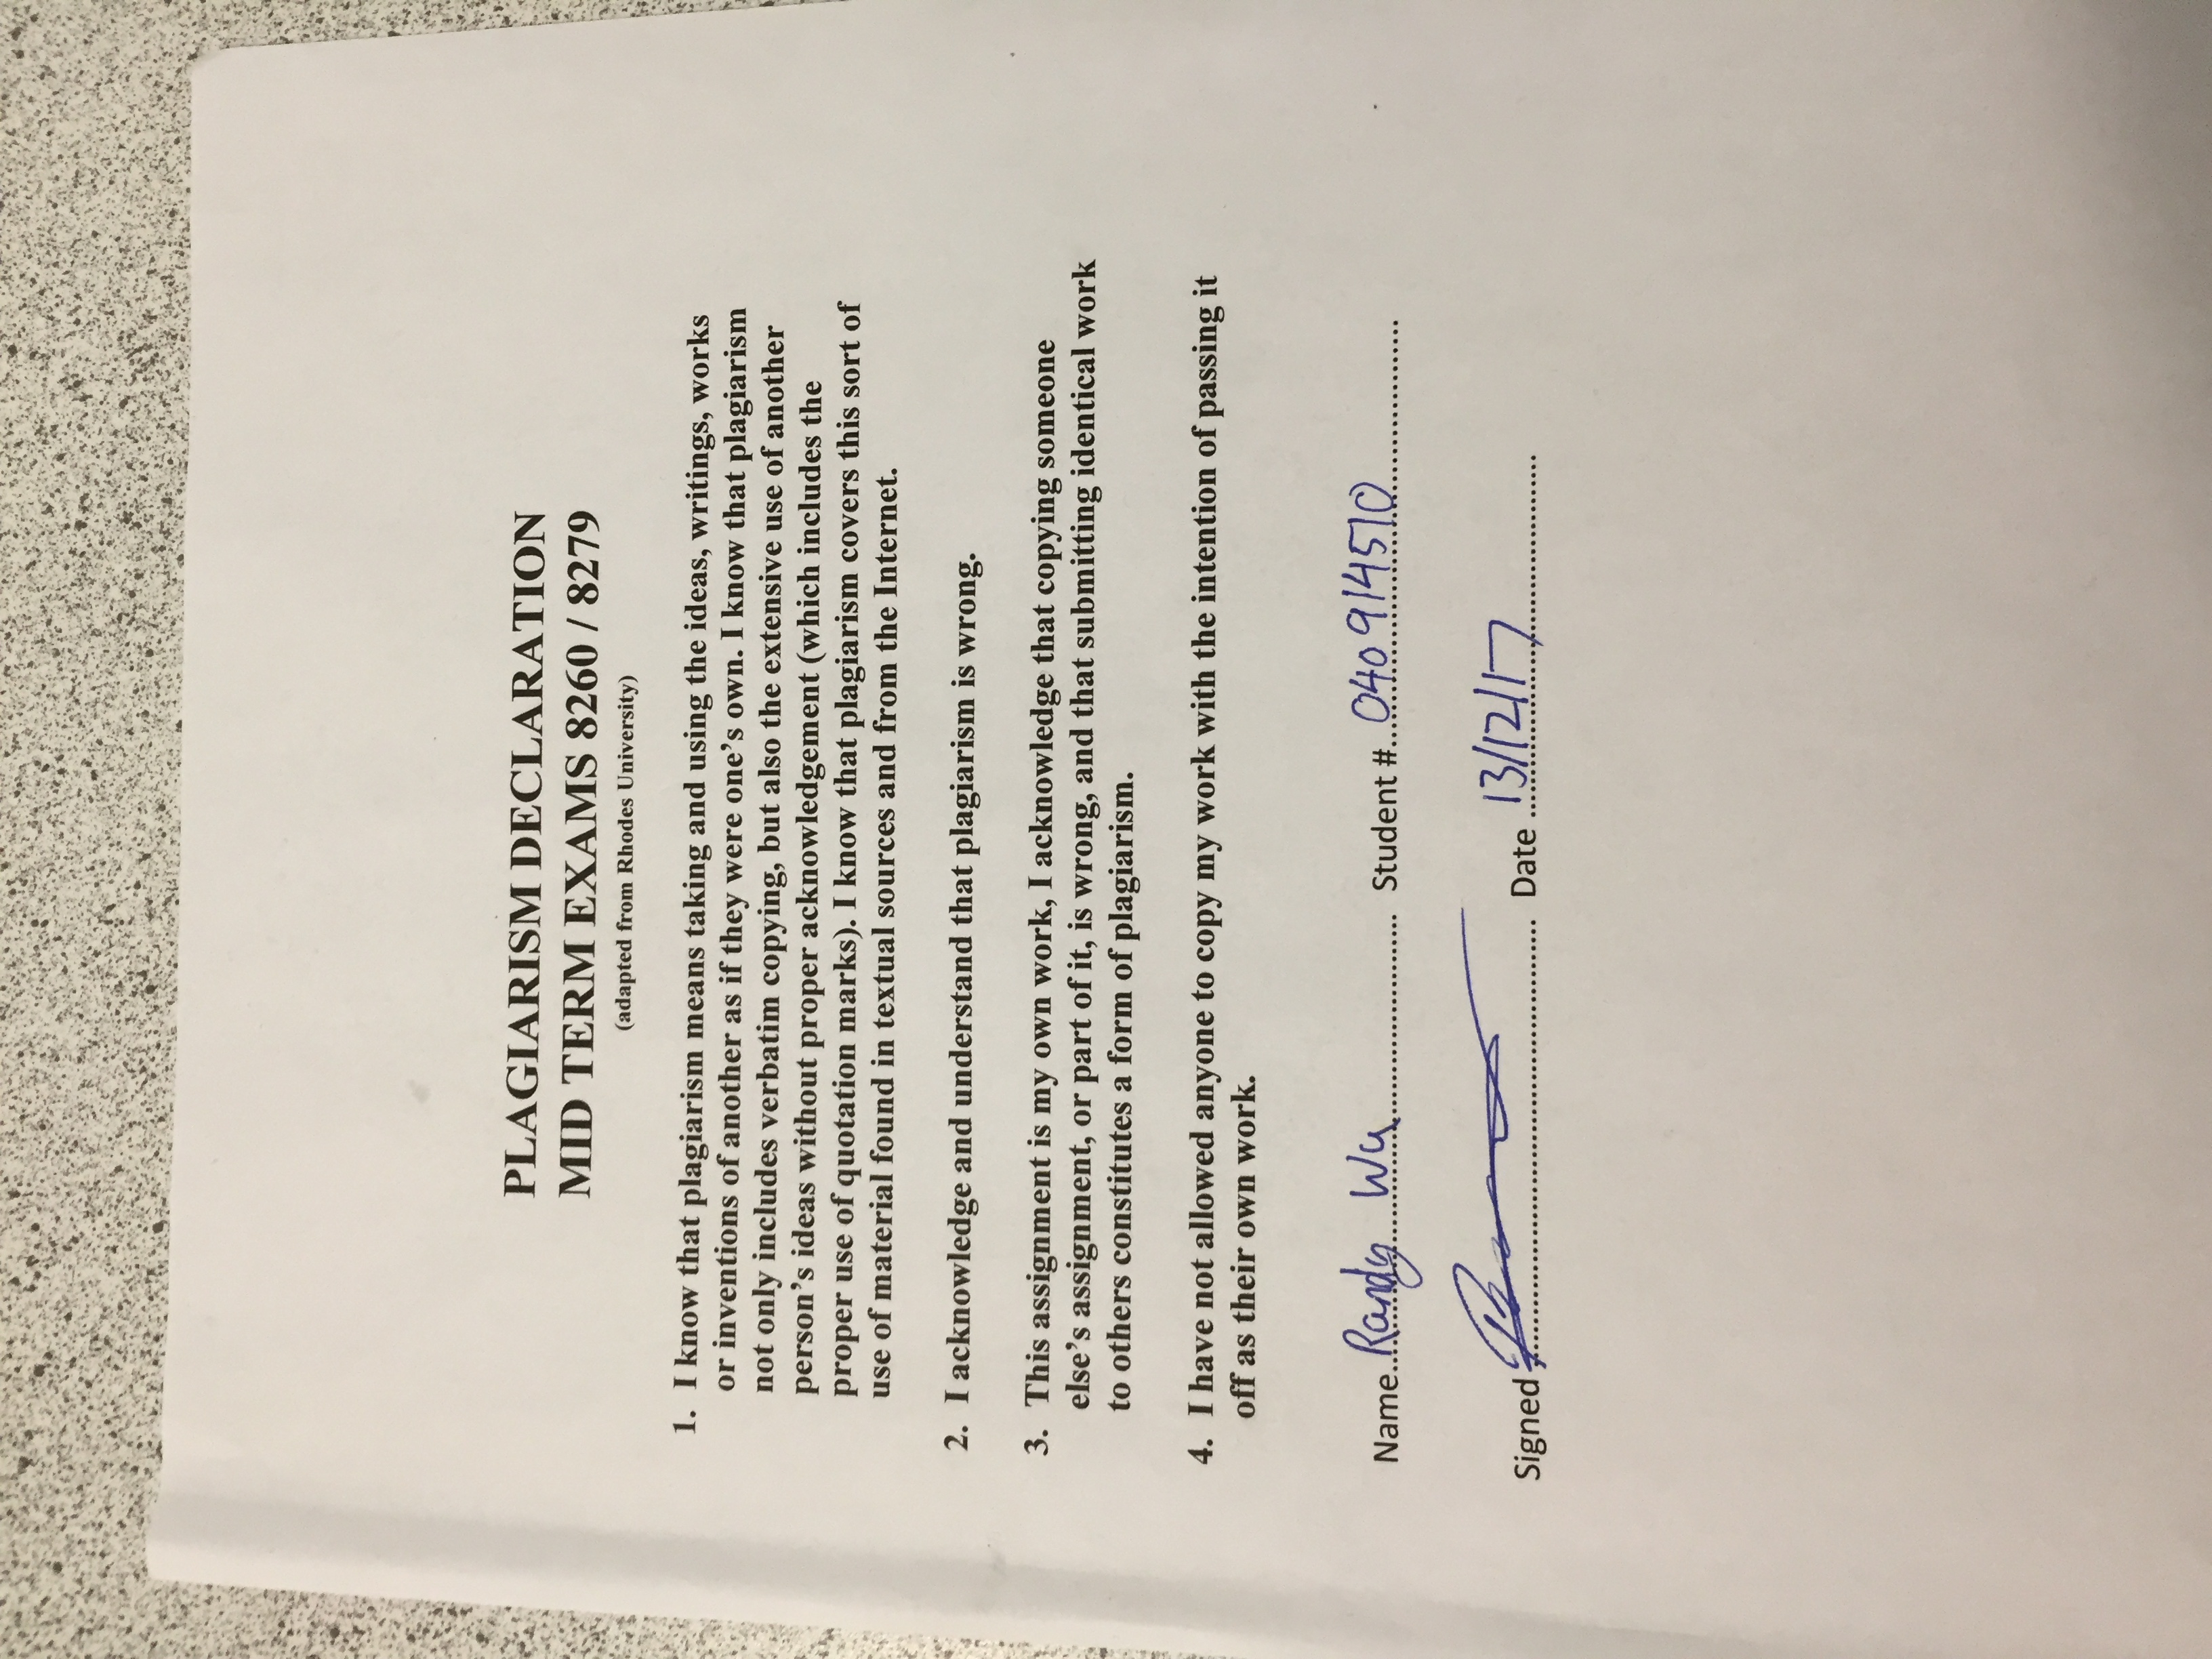 PLAGIARISM DECLARATION
MID TERM EXAMS 8260 / 8279
(adapted from Rhodes University)
1. I know that plagiarism means taking and using the ideas, writings, works
or inventions of another as if they were one’s own. I know that plagiarism
not only includes verbatim copying, but also the extensive use of another
person’s ideas without proper acknowledgement (which includes the
proper use of quotation marks). I know that plagiarism covers this sort of
use of material found in textual sources and from the Internet.
2. I acknowledge and understand that plagiarism is wrong.
3. This assignment is my own work, I acknowledge that copying someone
else’s assignment, or part of it, is wrong, and that submitting identical work
to others constitutes a form of plagiarism.
4. I have not allowed anyone to copy my work with the intention of passing it
off as their own work.
Name Randy Wu Student # 040914510
Signed Date 13/12/17